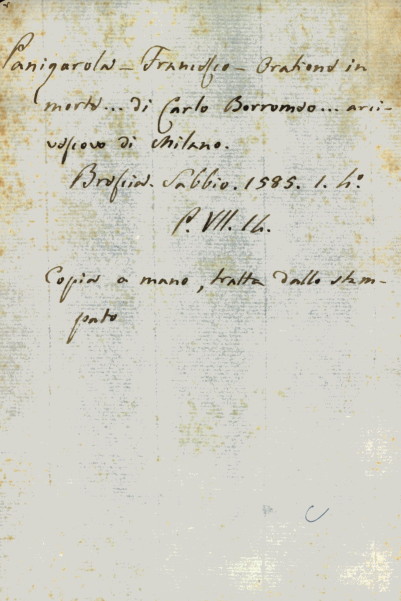 Panigarola - Francesco - Oratione in
morte... di Carlo Borromeo... arci-
vescovo di Milano.
Brescia. Sabbio. 1585. 1. 4°.
P. VII. 14.
Copia a mano, tratta dallo stam-
pato